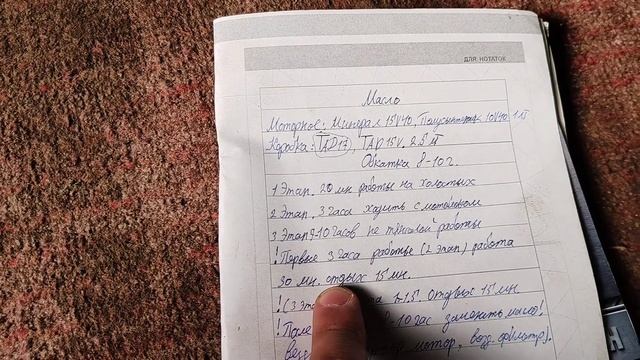 ДЛЯ НОТАТОК
Масло
Моторное: Минерал 15W40, Полусинтетик 10W40 1л
Коробка: ТАД17, ТАD15V, 2.5л
Обкатка 8-10г.
1 Этап. 20 мн работы на холостых
2 Этап. 3 часа ходить с мотоблоком
3 Этап 9-10 часов не тяжолой работы
! Первые 3 часа работы (2 Этап) работа
30 мн. отдых 15 мн.
! (3 Эта 1-1.5ч. Отдых 15 мн.
! После 8-10 час заменить масло!
мотор, возд. фильтр).